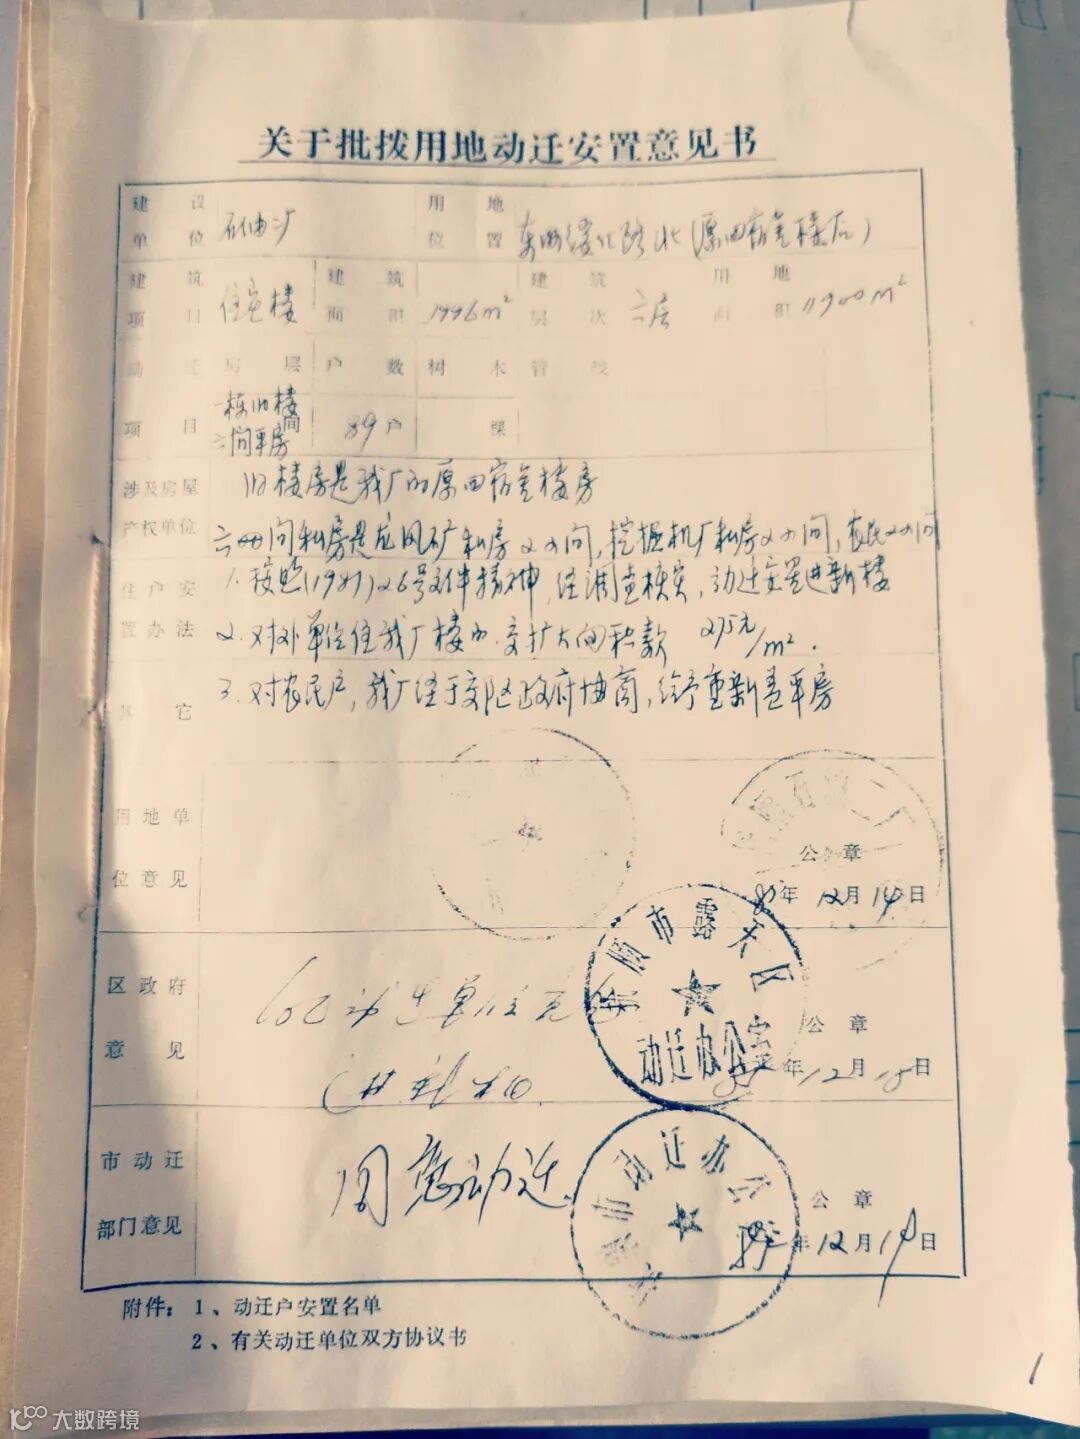 关于批拨用地动迁安置意见书
建设单位 石油二厂 用地位置
建筑项目 住宅楼 建筑面积 1996m² 建筑层次 六层 用地面积 1900m²
动迁项目 房层 户数 树木 管线
一栋旧楼
六间平房 89户 棵
涉及房屋产权单位
旧楼房是我厂的原四宿舍楼房
六间私房是龙凤矿私房2间,挖掘机厂私房2间,农民2间
住户安置办法
1.按照(1981)26号文件精神,经调查核实,动迁安置进新楼
2.对外单位住我厂楼的.交扩大面积款 275元/m².
其它
3.对农民户,我厂经于郊区政府协商,给予重新盖平房
用地单位意见
公章
年12月14日
区政府意见
动迁单位
顺市露天区
动迁办公室
公章
年12月18日
市动迁部门意见
同意动迁
市动迁办公
公章
年12月19日
附件:1、动迁户安置名单
2、有关动迁单位双方协议书
1
大数跨境